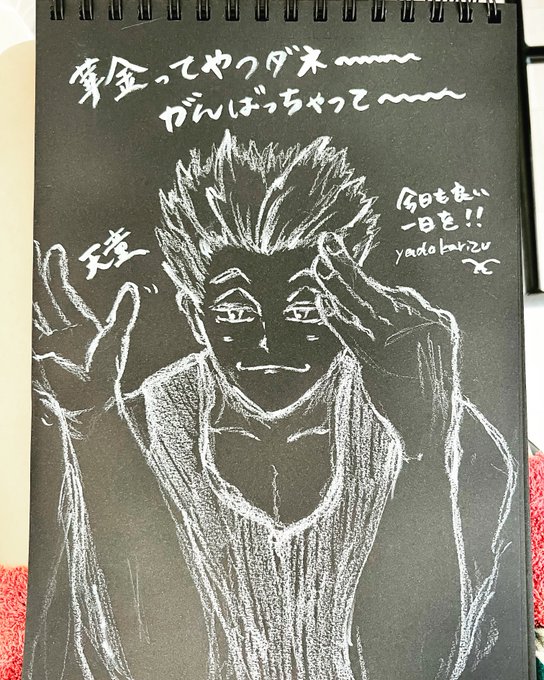 華金ってやつダネ〜〜〜
がんばっちゃって〜〜〜
天童
今日も良い
一日を!!
yadokarizu